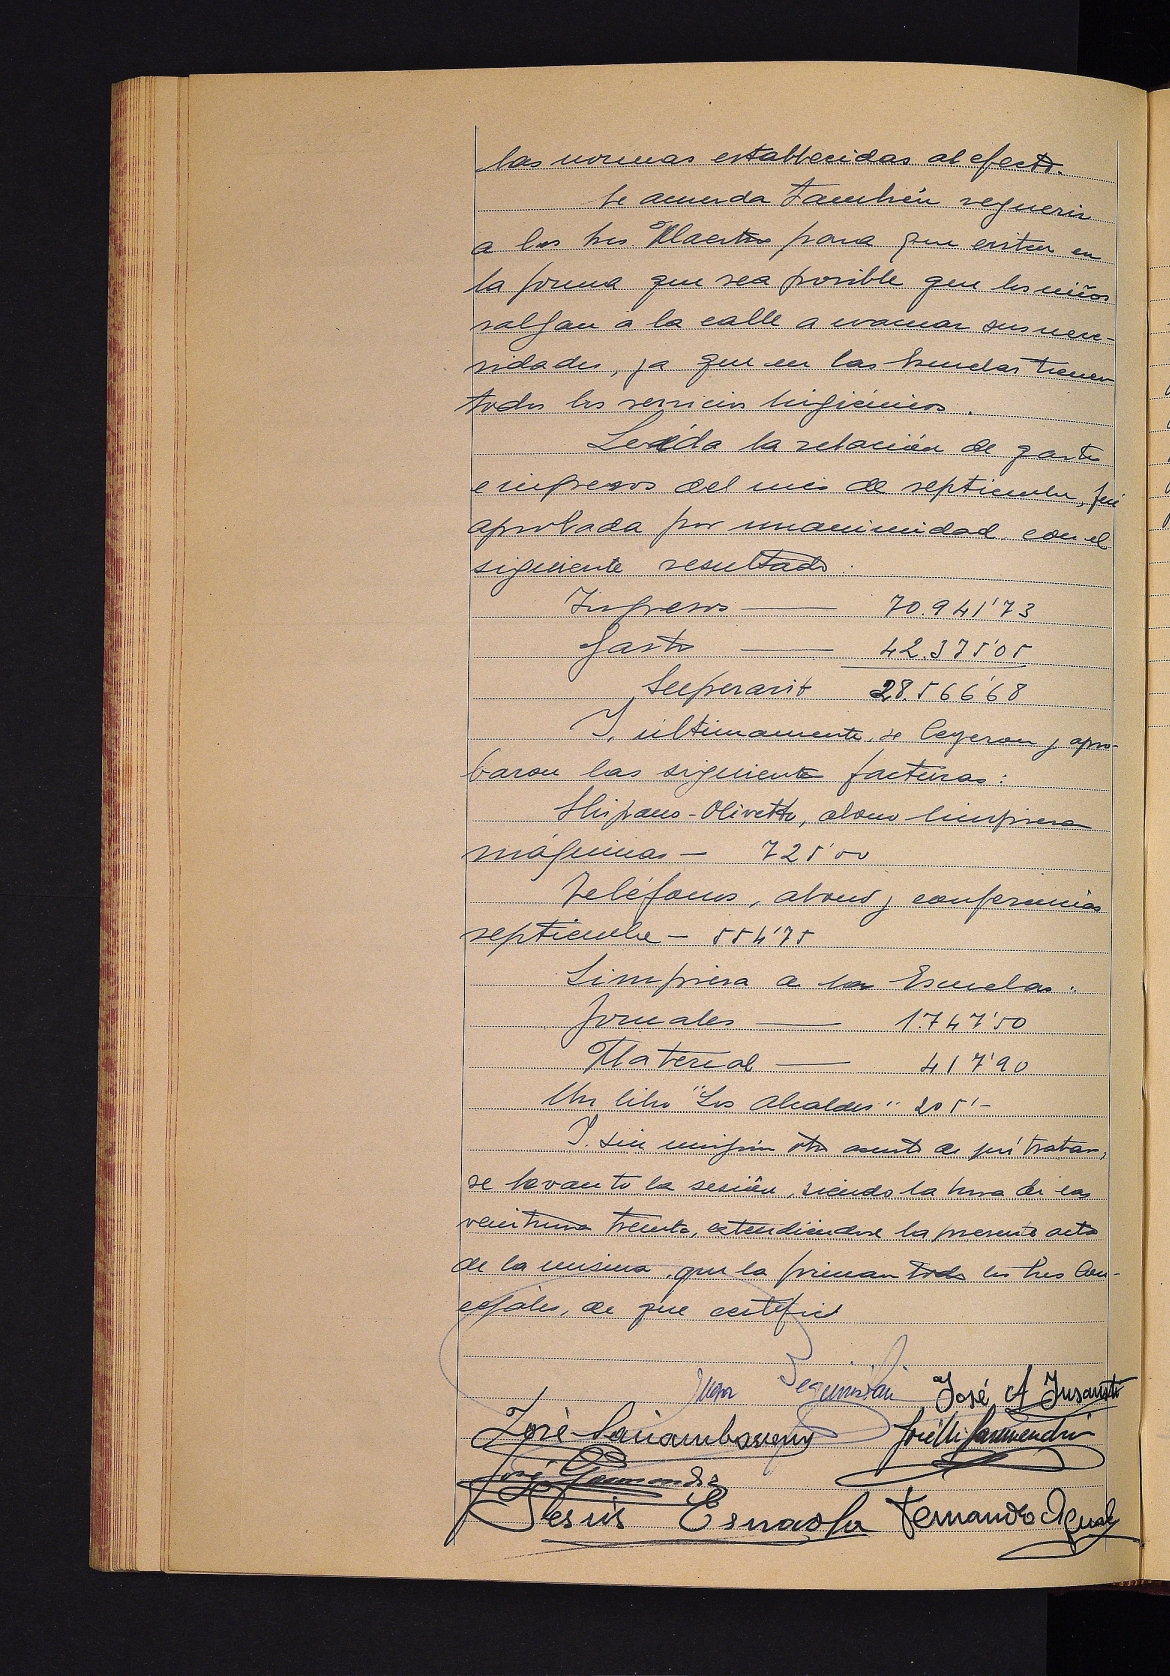 las normas establecidas al efecto.
Se acuerda también requerir
a los tres Maestros para que eviten en
la forma que sea posible que los niños
salgan a la calle a evacuar sus nece-
sidades, ya que en las Escuelas tienen
todos los servicios higiénicos.
Leída la relación de gastos
e ingresos del mes de septiembre, fué
aprobada por unanimidad con el
siguiente resultado:
Ingresos — 70.941'73
Gastos — 42.375'05
Superavit 28.566'68
Y, ultimamente, se leyeron y apro-
baron las siguientes facturas:
Hispano-Olivetti, abono limpieza
máquinas — 725'00
Teléfonos, abono y conferencias
septiembre — 554'75
Limpieza a las Escuelas:
Jornales — 1.747'50
Material — 417'90
Un libro "Los Alcaldes" 205'-
Y sin ningún otro asunto de qué tratar,
se levanto la sesión, siendo la hora de las
veintiuna treinta, extendiendose la presente acta
de la misma, que la firman todos los tres Con-
cejales, de que certifico
José A Insausti
José
José
Jesús Esnaola Fernando